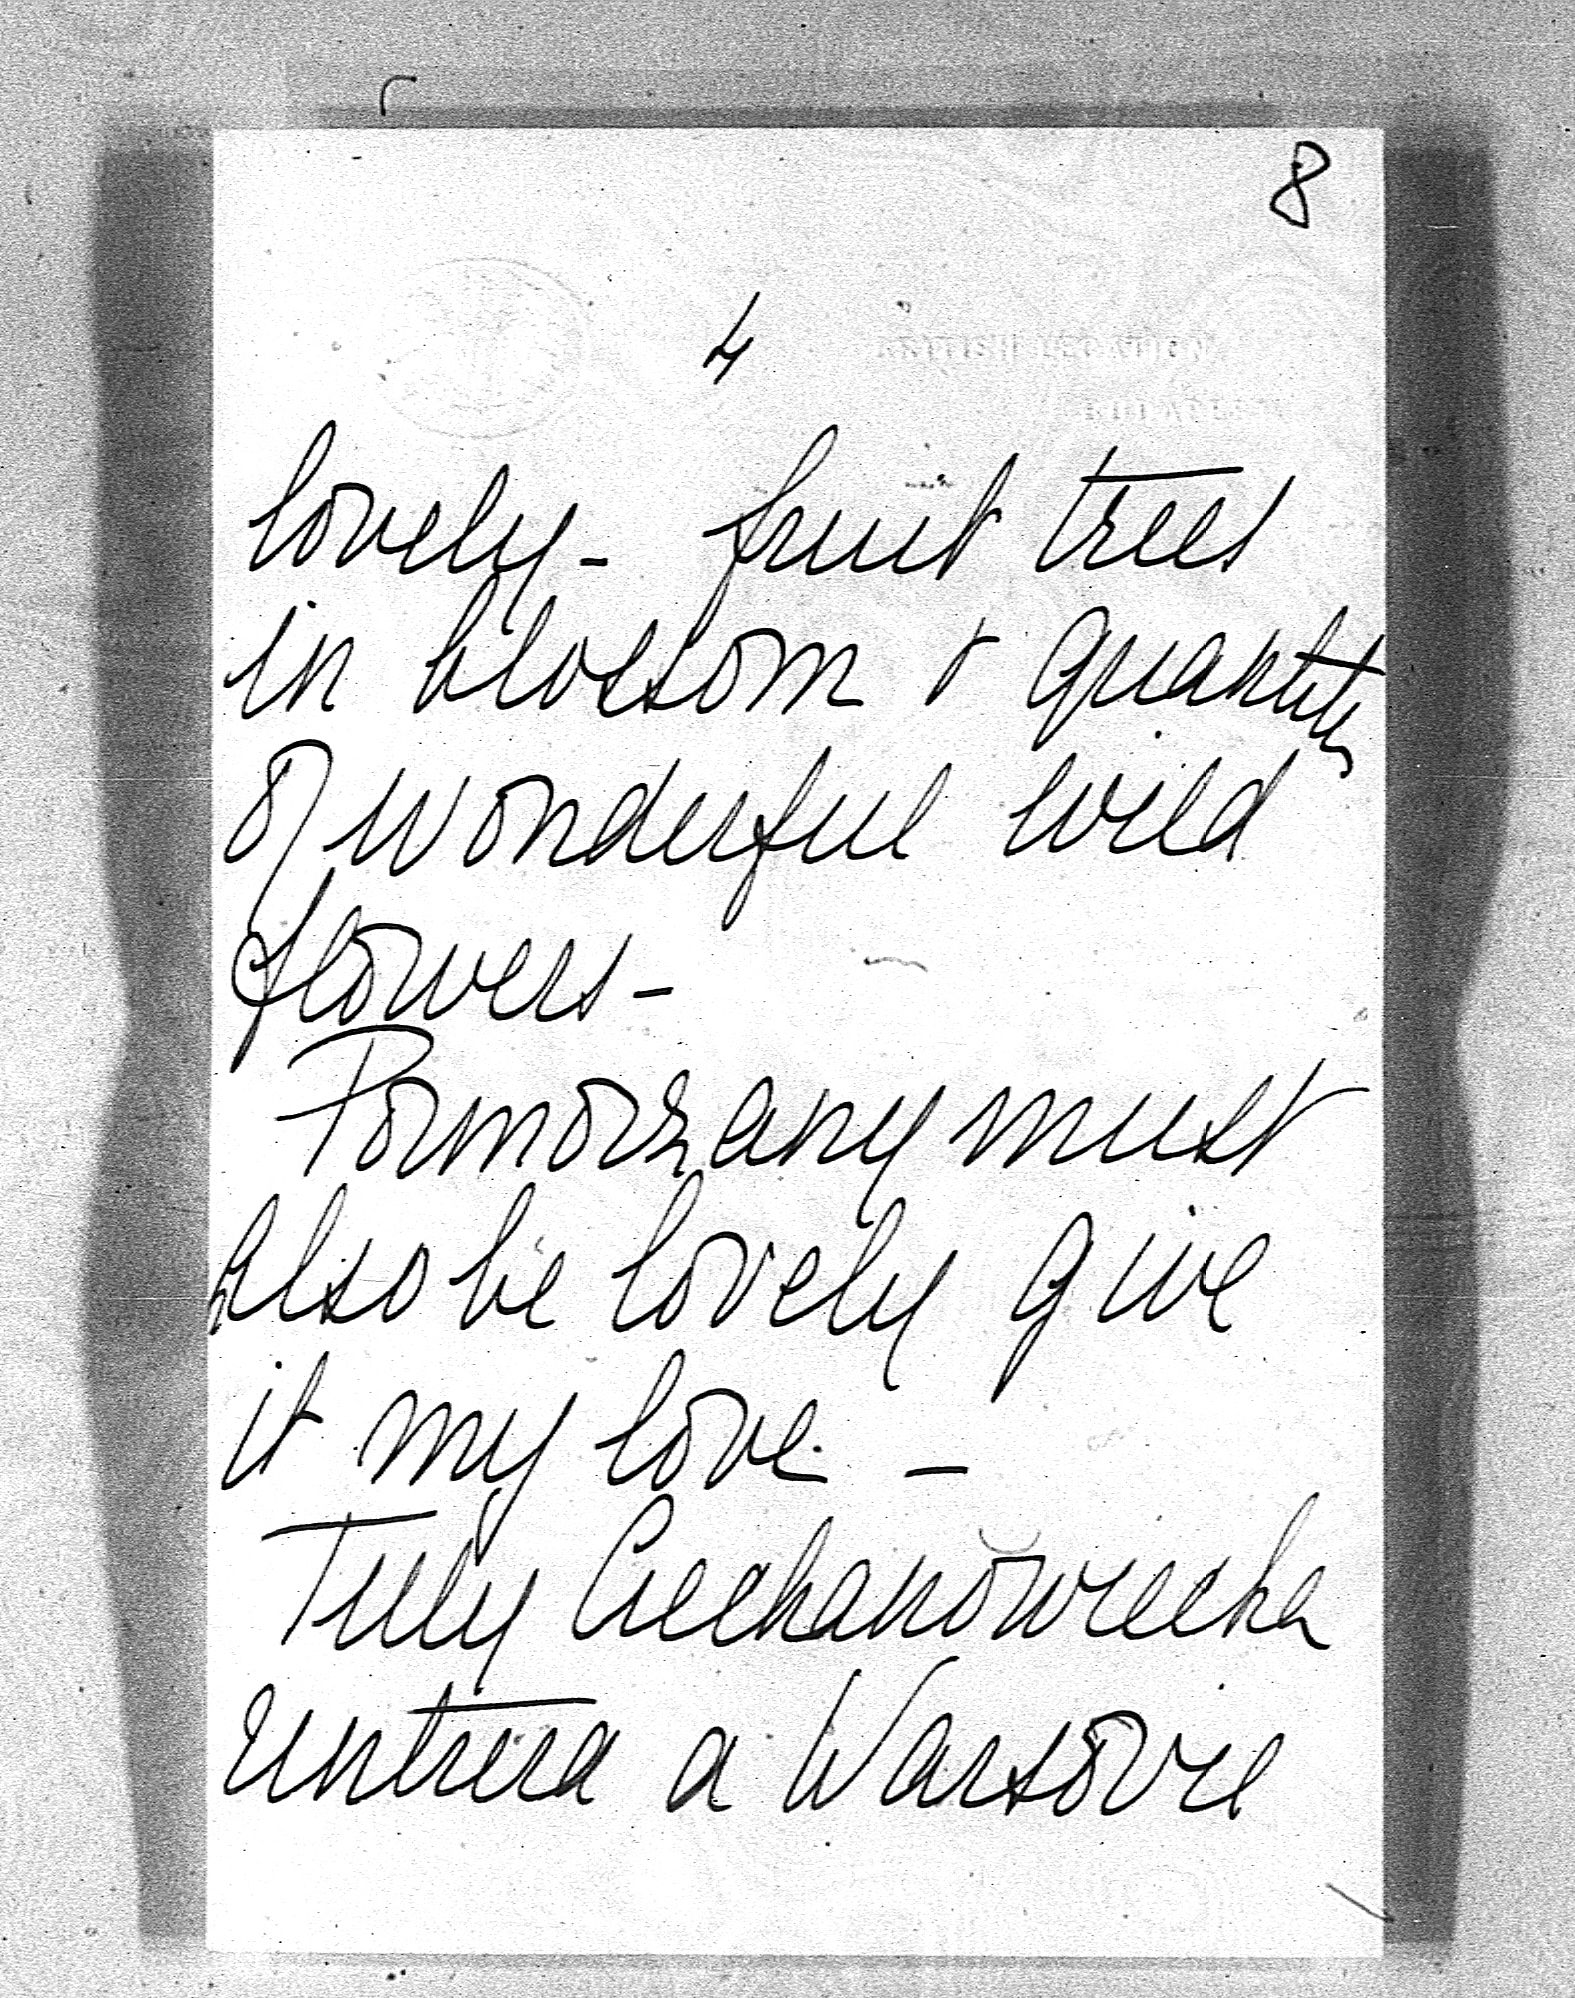 8
4
BRITISH LEGATION
lovely - fruit trees
in blossom & quantities
of wonderful wild
flowers -
Pomorzany must
also be lovely give
it my love. -
Tilly Ciechanowiecka
rentrera a Varsovie